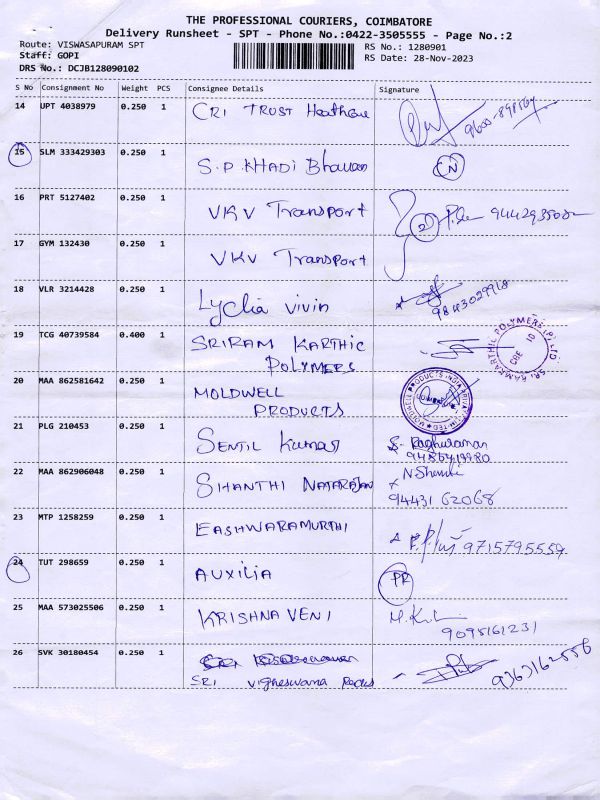 THE PROFESSIONAL COURIERS, COIMBATORE
Delivery Runsheet - SPT - Phone No.:0422-3505555 - Page No.:2
Route: VISWASAPURAM SPT
Staff: GOPI
DRS No.: DCJB128090102
RS No.: 1280901
RS Date: 28-Nov-2023
S No Consignment No Weight PCS Consignee Details Signature
14 UPT 4038979 0.250 1 CRI TRUST Heathcare
15 SLM 333429303 0.250 1 S.P. KHADI Bhavan CN
16 PRT 5127402 0.250 1 VKV Transport 2
17 GYM 132430 0.250 1 VKV Transport
18 VLR 3214428 0.250 1 Lydia vivin 9843029918
19 TCG 40739584 0.400 1 SRIRAM KARTHIC
POLYMERS
SRI RAMKARTHIC POLYMERS (P) LTD
20 MAA 862581642 0.250 1 MOLDWELL
PRODUCTS
MOLDWELL PRODUCTS INDIA PRIVATE LIMITED
21 PLG 210453 0.250 1 SENTIL Kumar S. Raghuraman
22 MAA 862906048 0.250 1 SHANTHI NATARAJAN N Shanthi
94431 62068
23 MTP 1258259 0.250 1 EASHWARAMURTHI 9715795559
24 TUT 298659 0.250 1 AUXILIA PR
25 MAA 573025506 0.250 1 KRISHNAVENI
9095161231
26 SVK 30180454 0.250 1
SRI Vigneswara Packs 9363162556